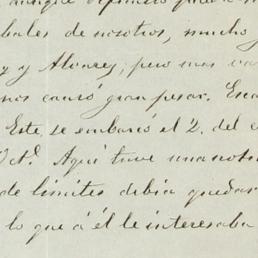 bales de nosotros, mucho
y Alvarez, pero mas va
nos causó gran pesar.
Este, se embarcó el 2. del c
Oct.e Aqui tuve una not
de limites debia quedar
lo que á él le interesaba